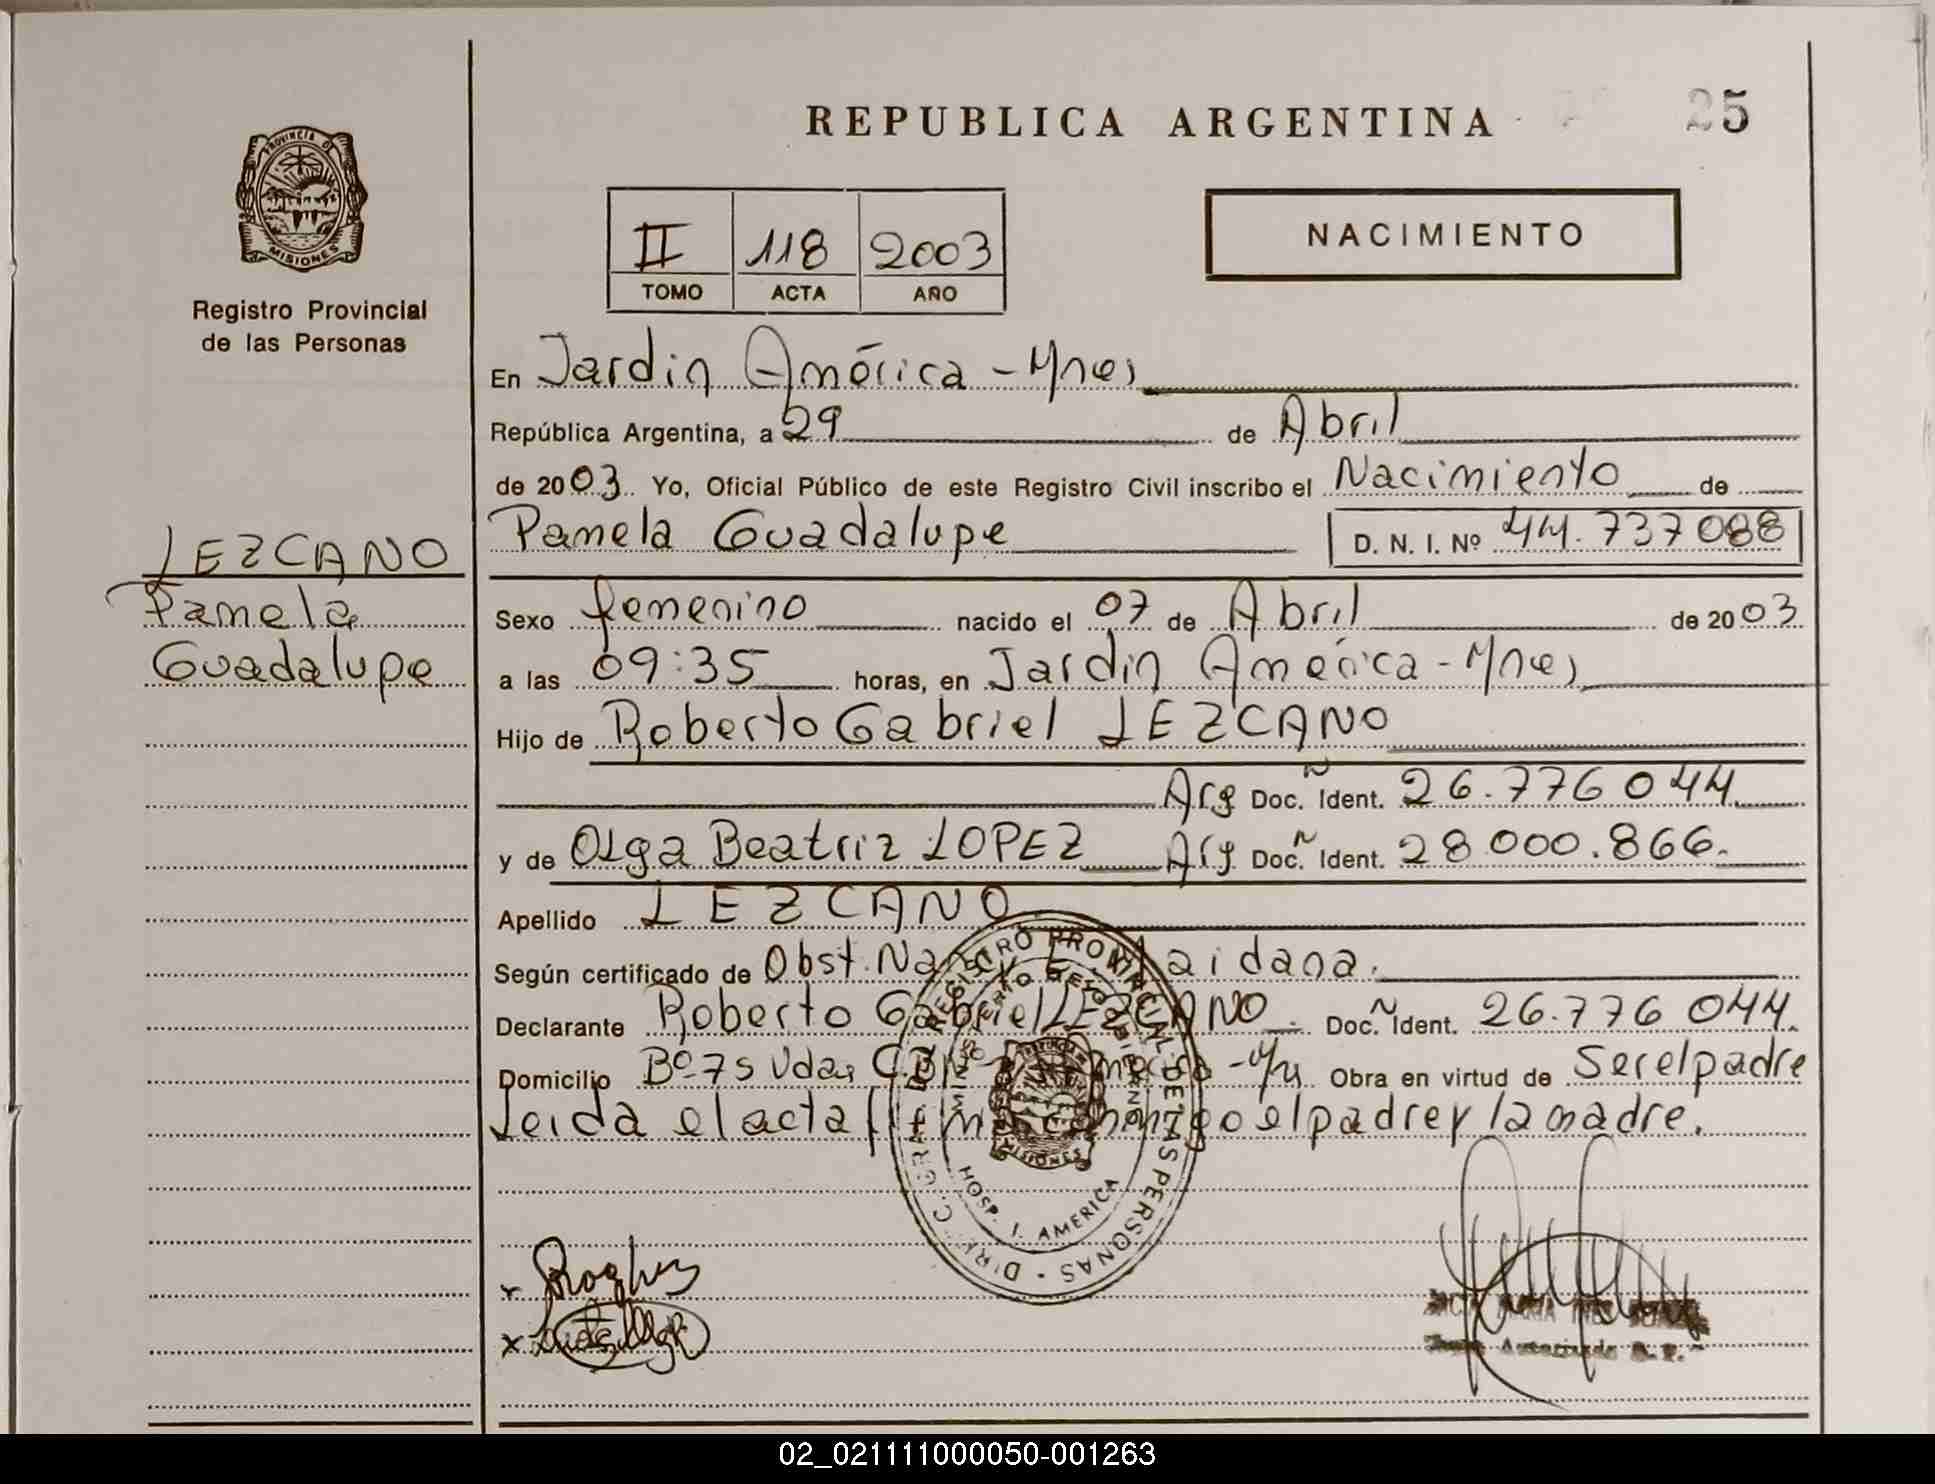 REPUBLICA ARGENTINA
25
PROVINCIA DE
MISIONES
Registro Provincial
de las Personas
II 118 2003
TOMO ACTA AÑO
NACIMIENTO
En Jardin América - Mnes
República Argentina, a 29 de Abril
de 2003. Yo, Oficial Público de este Registro Civil inscribo el Nacimiento de
Pamela Guadalupe D. N. I. Nº 44.737088
LEZCANO
Pamela
Guadalupe
Sexo femenino nacido el 07 de Abril de 2003
a las 09:35 horas, en Jardin América - Mnes
Hijo de Roberto Gabriel LEZCANO
Arg Doc. Ident. 26.776044
y de Olga Beatriz LOPEZ Arg. Doc. Ident. 28000.866.
Apellido LEZCANO
Según certificado de Obst. Maidana.
Declarante Roberto Gabriel LEZCANO. Doc. Ident. 26.776044.
Domicilio Bº 75 Vdas América - Obra en virtud de Ser el padre
Leida el acta firman conmigo el padre y la madre.
REGISTRO PROVINCIAL DE LAS PERSONAS
HOSP. J. AMERICA
MISIONES
02_021111000050-001263